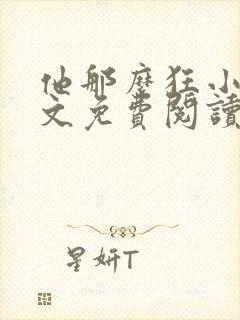 他那麼狂小
文免費閱讀
星妍T